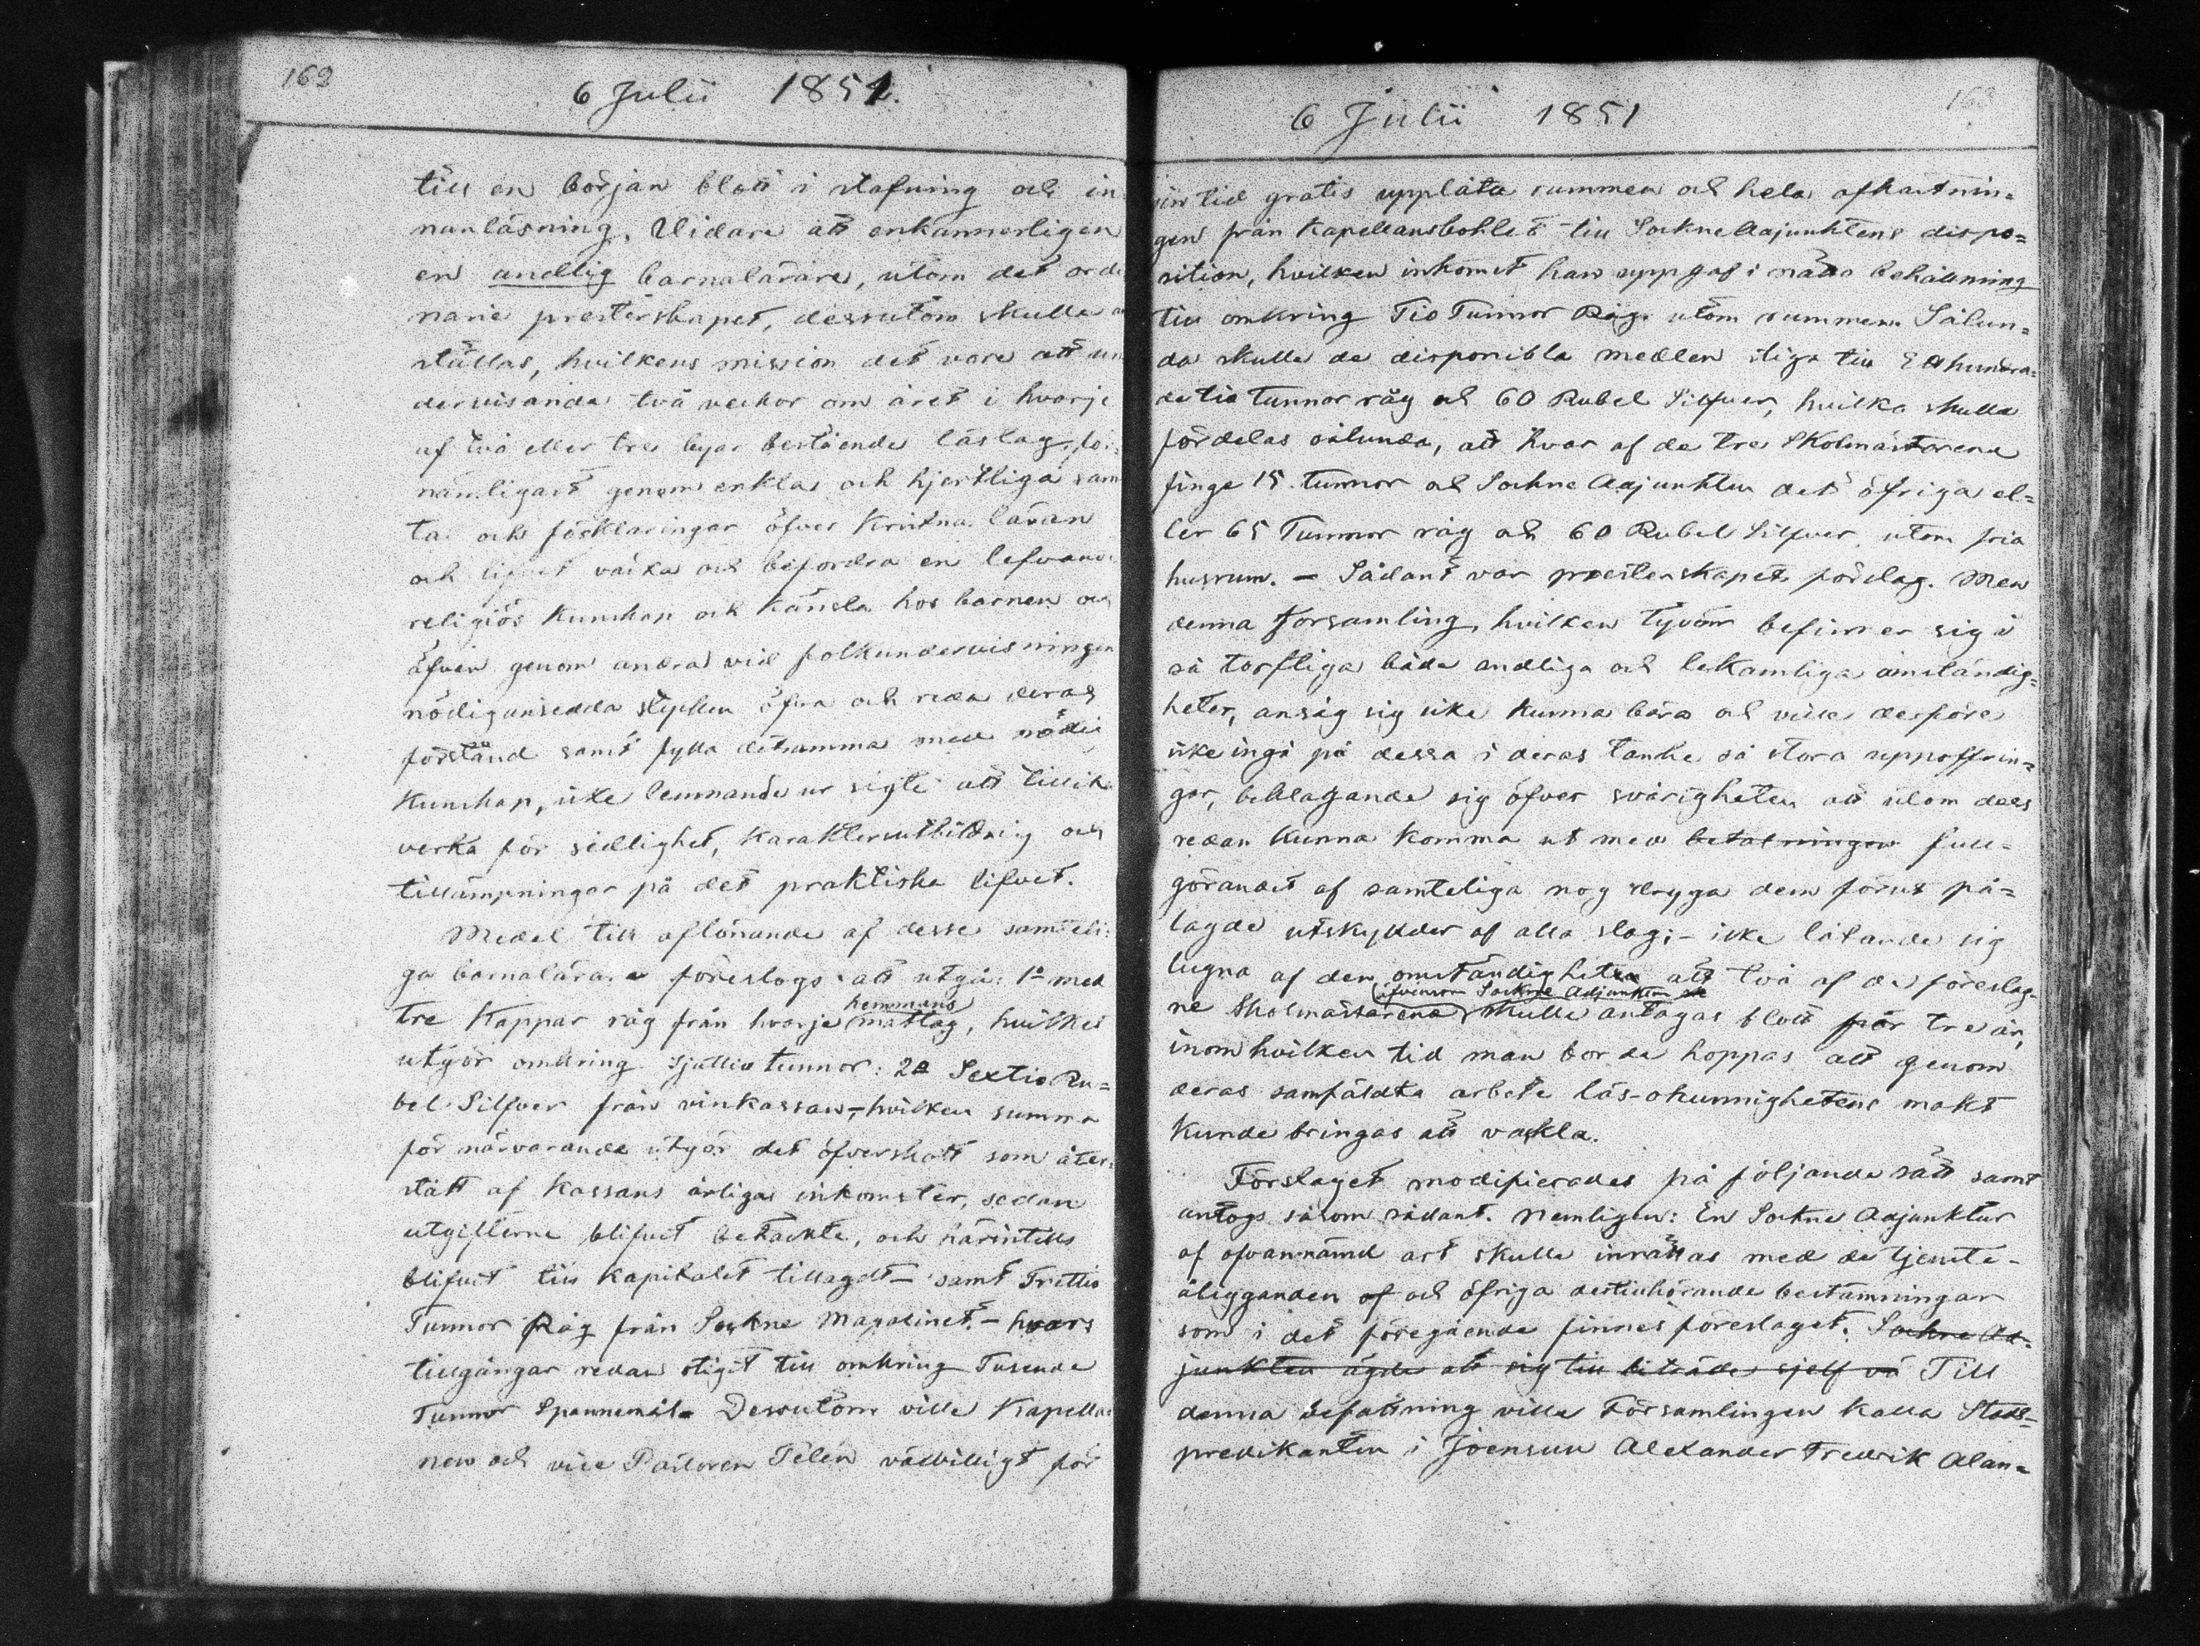 162
6 Julii 1851.
till en början blott i stafning och in
nanläsning. Vidare att enkannerligen
en andlig barnalärare, utom det orde
narie presterskapet, dessutom skulle
ställas, hvilkens mission det vore att un
dervisande två veckor om året i hvarje
af två eller tre byar bestående läslag, för-
nämligast genom enkla och hjertliga sam
tal och förklaringar öfver kristna läran
och lifvet väcka och befordra en lefvand
religiös kunskap och känsla hos barnen och
äfven genom andra vid folkundervisningen
nödigansedda stycken öfva och reda deras
förstånd samt fylla detsamma med nödig
kunskap, icke lemnande ur sigte att tillika
verka för sedlighet, karaktersutbildnig och
tillämpningar på det praktiska lifvet.
Medel till aflönande af desse samteli-
ga barnalärare föreslogs att utgå: 1o med
tre kappar råg från hvarje hemmans matlag, hvilket
utgör omkring sjuttio tunnor: 2o Sextio Ru=
bel Silfver från vinkassan, - hvilken summa
för närvarande utgör det öfverskott som åter-
stått af kassans årliga inkomster, sedan
utgifterne blifvit betäckte, och härintills
blifvit till kapitalet tillagdt - samt Trettio
Tunnor Råg från Sockne Magasinet. - hvars
tillgångar redan stigit till omkring Tusende
Tunnor Spannemål. Dessutom ville Kapella
nen och vice Pastoren Telén välvilligt för
163
6 Julii 1851
sin tid gratis upplåta rummen och hela afkastnin=
gen från Kapellansbohlet till Sockne Adjunktens dispo=
sition, hvilken inkomst han uppgaf i nätto behållning
till omkring Tio Tunnor Råg utom rummen. Sålun=
da skulle de disponibla medlen stiga till Etthundra=
detio tunnor råg och 60 Rubel Silfver, hvilka skulle
fördelas sålunda, att hvar af de tre Skolmästarena
finge 15 tunnor och Sockne Adjunkten det öfriga el=
ler 65 Tunnor råg och 60 Rubel Silfver utom fria
husrum. - Sådant var presterskapets förslag. Men
denna församling, hvilken tyvärr befinner sig i
så torftiga både andliga och lekamliga omständig=
heter, ansåg sig icke kunna bära och ville derföre
icke ingå på dessa i deras tanke så stora uppoffrin=
gar, beklagande sig öfver svårigheten att utom dess
redan kunna komma ut med betalningen full=
görandet af samteliga nog dryga dem förut på=
lagde utskylder af alla slag; - icke låtande sig
lugna af den omständigheten att två af de föreslag=
ne Skolmästarena äfvensom Sockne Adjunkten skulle antagas blott för tre år,
inom hvilken tid man borde hoppas att genom
deras samfäldta arbete läs-okunnighetens makt
kunde bringas att vackla.
Förslaget modifierades på följande sätt samt
antogs såsom sådant. Nemligen: En Sockne Adjunktur
af ofvannämd art skulle inrättas med de tjenste-
åligganden af och öfriga dertillhörande bestämningar
som i det föregående finnes föreslaget. Sockne Ad-
junkten ägde att sig till biträde sjelf vä Till
denna befattning ville Församlingen kalla Stads-
predikanten i Joensuu Alexander Fredrik Alan=